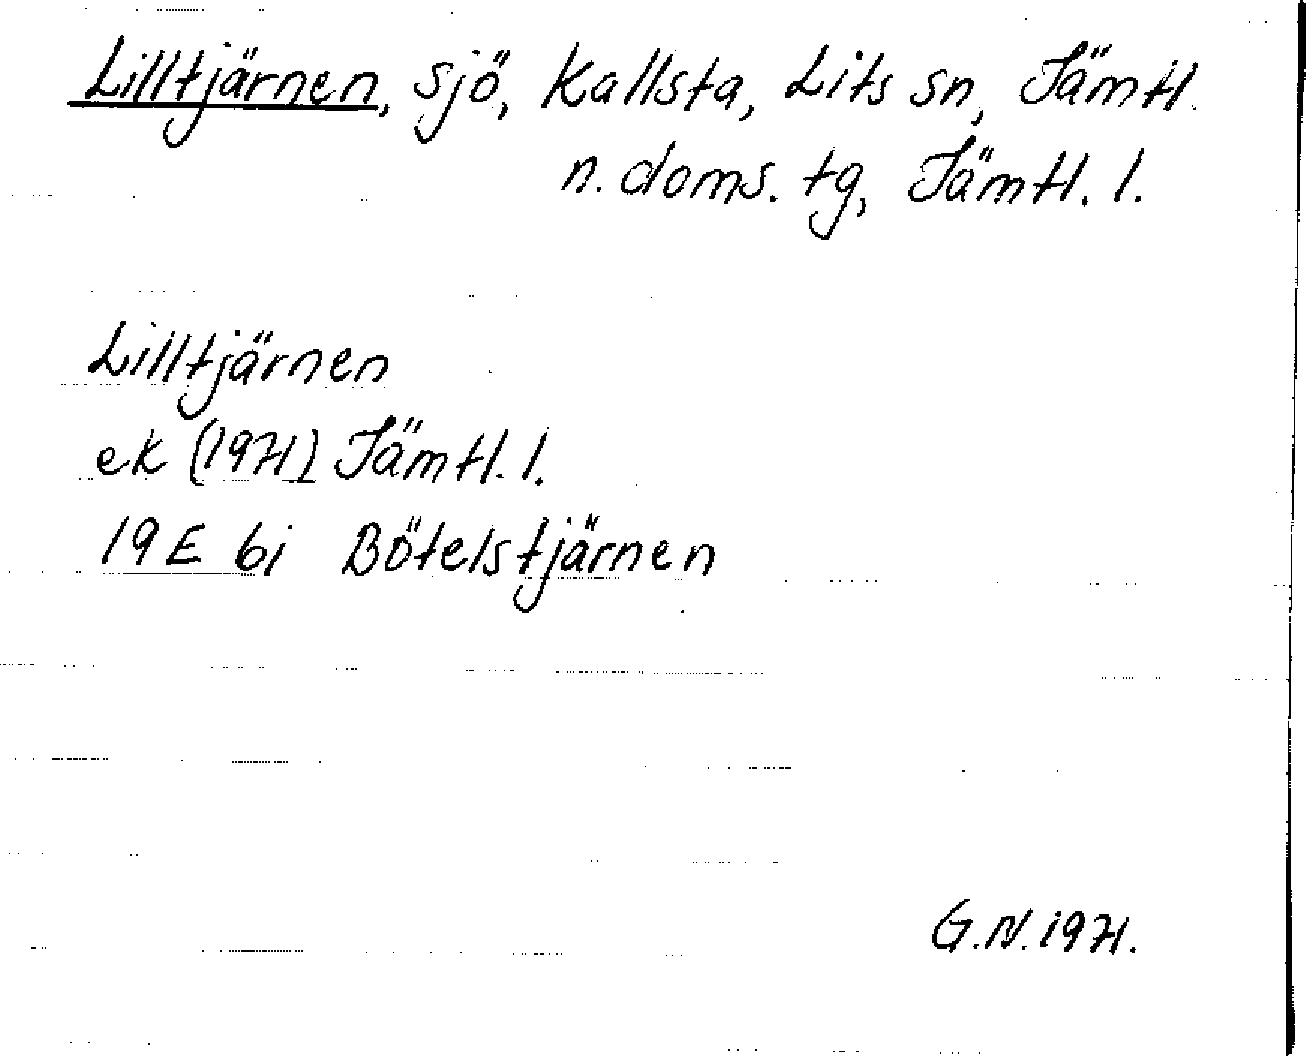 Lilltjärnen, sjö, Kallsta, Lits sn, Jämtl.
n. doms. tg, Jämtl. l.
Lilltjärnen
ek (1971) Jämtl. l.
19 E 6i Bötelstjärnen
G.N. 1971.